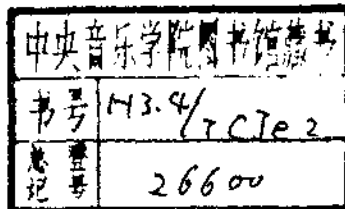 中央音乐学院图书馆藏书
书号 H3.4/TCJe2
总登记号 26600